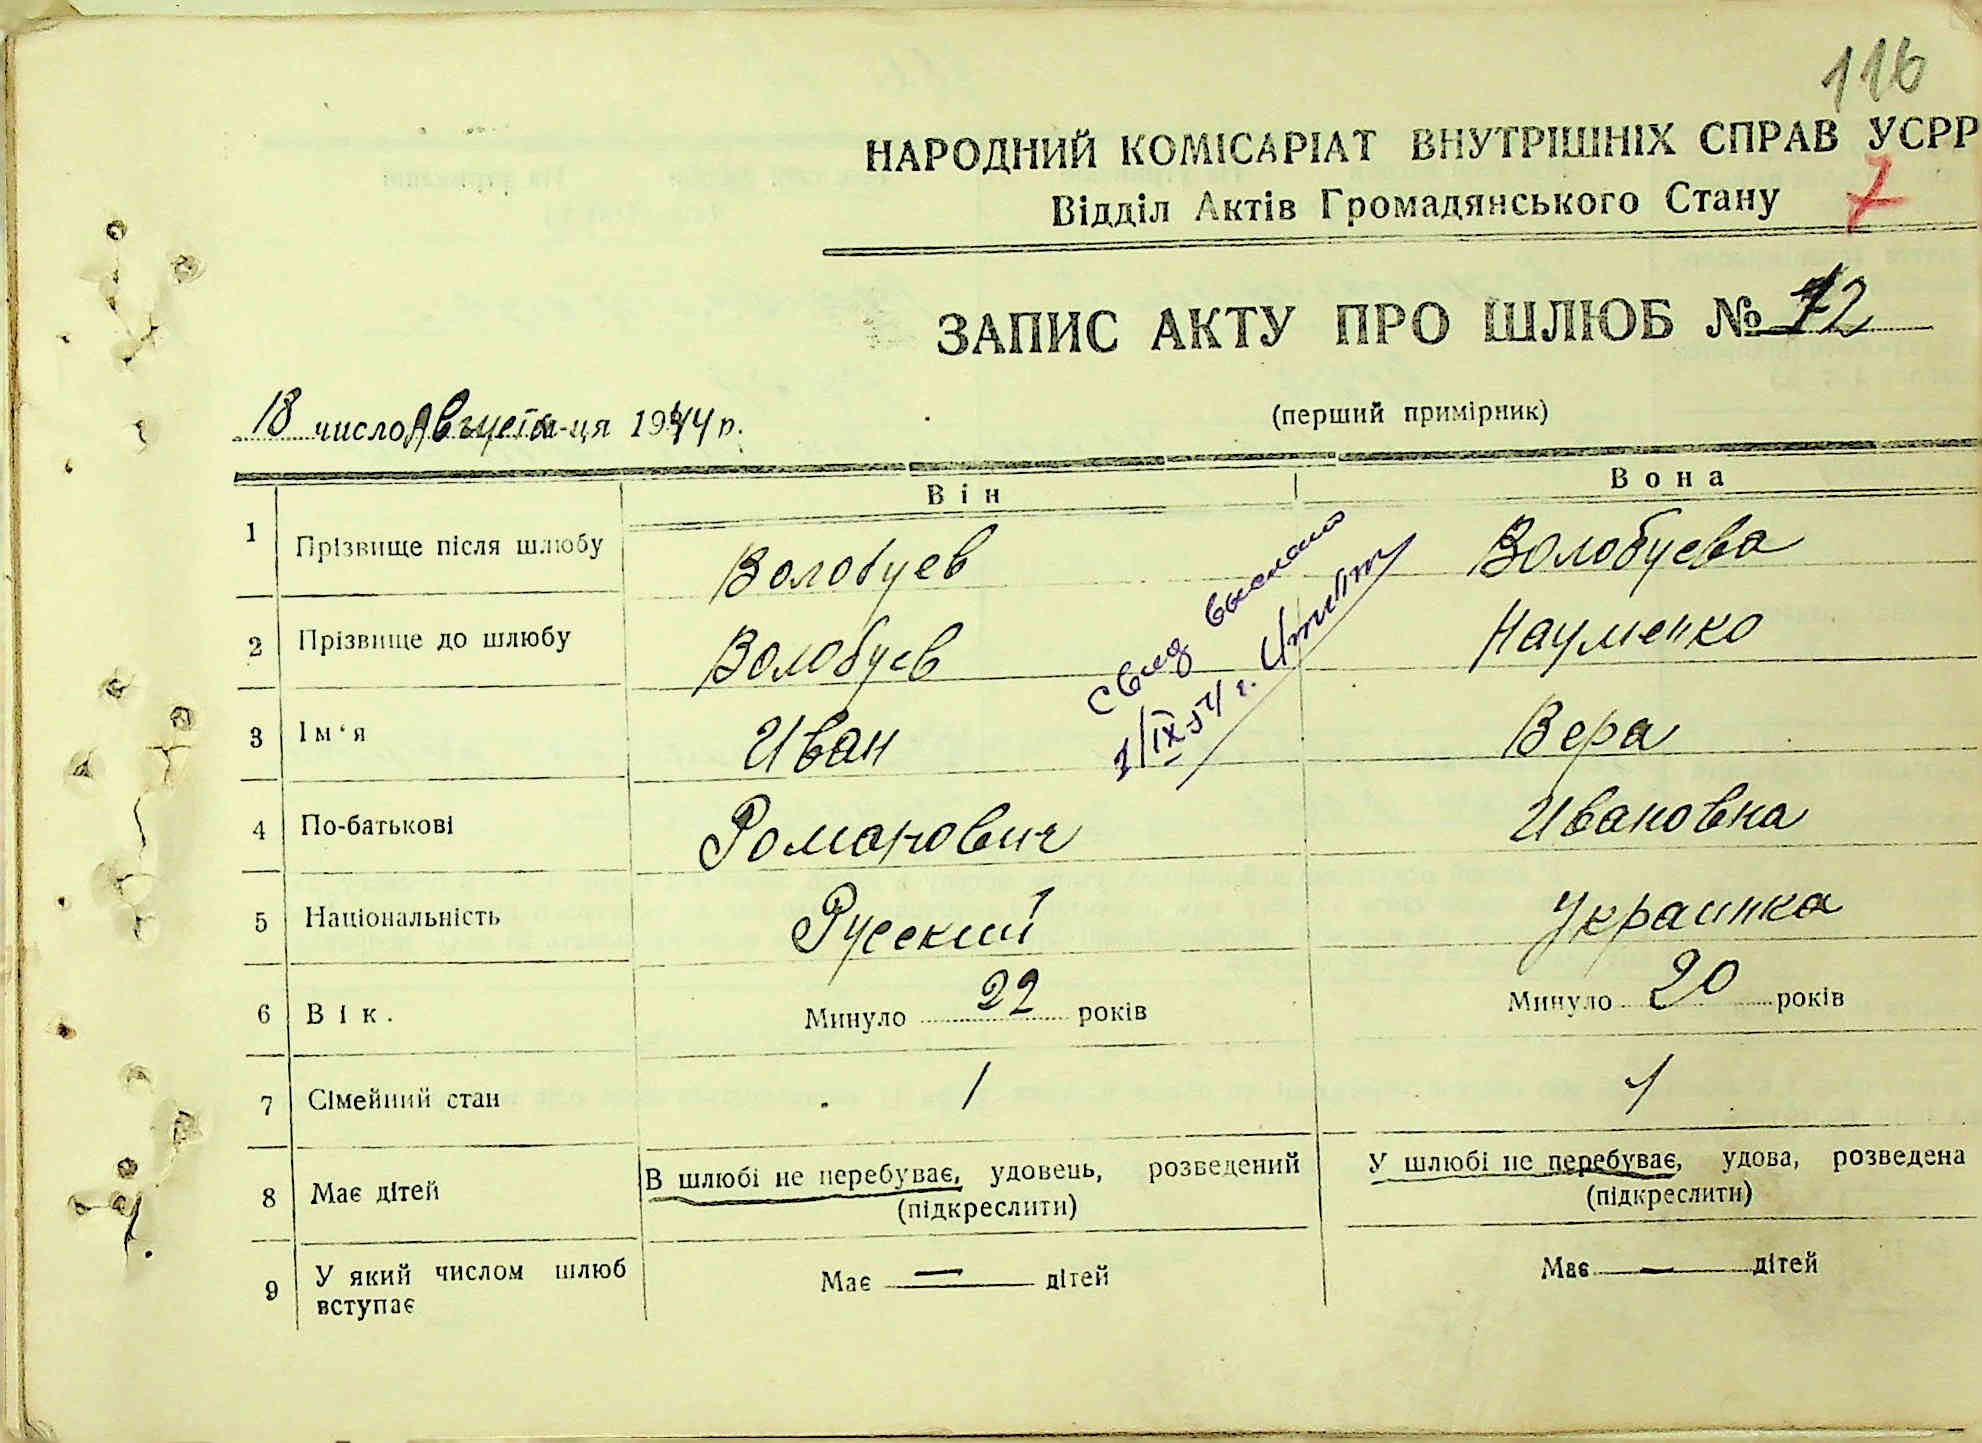 116
НАРОДНИЙ КОМІСАРІАТ ВНУТРІШНІХ СПРАВ УСРР
Відділ Актів Громадянського Стану 7
ЗАПИС АКТУ ПРО ШЛЮБ № 12
18 число Августа м-ця 1944 р.
(перший примірник)
Він Вона
1 Прізвище після шлюбу Волобуев Волобуева
2 Прізвище до шлюбу Волобуев Науменко
свид выслано
1/IX 54 г.
3 Ім'я Иван Вера
4 По-батькові Романович Ивановна
5 Національність Русский Украинка
6 Вік. Минуло 22 років Минуло 20 років
7 Сімейний стан 1 1
8 Має дітей В шлюбі не перебуває, удовець, розведений У шлюбі не перебуває, удова, розведена
(підкреслити) (підкреслити)
9 У який числом шлюб
вступає
Має — дітей Має — дітей